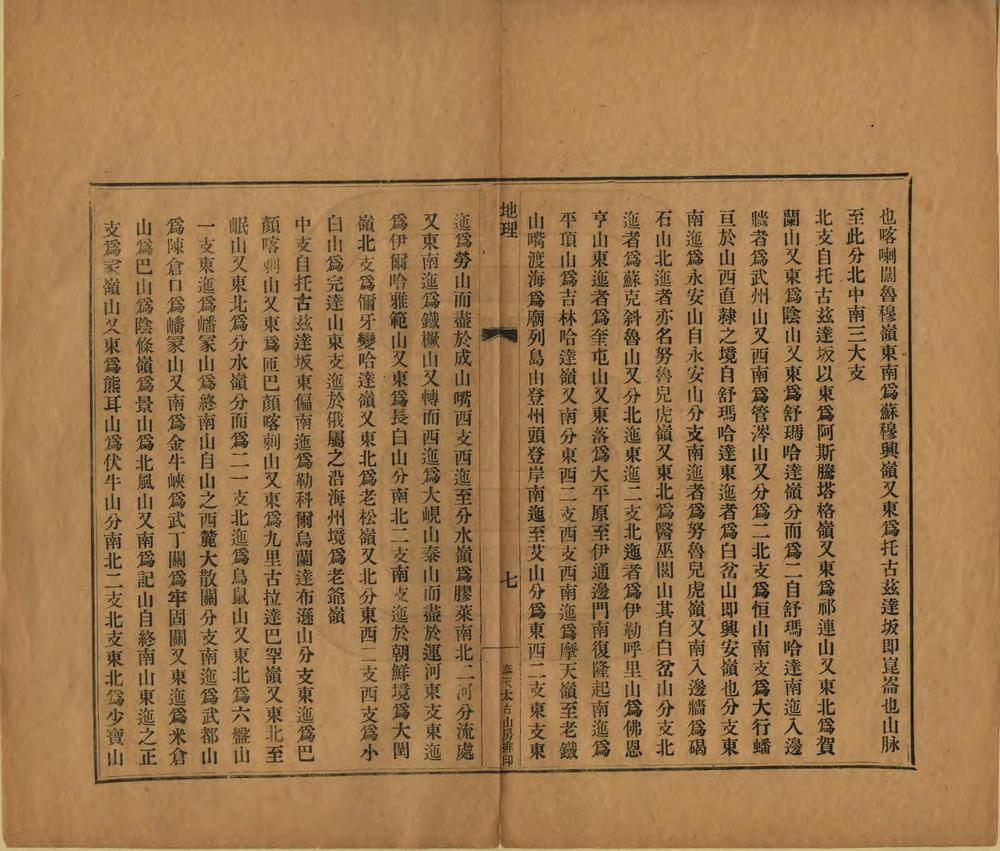 也喀喇闊魯穆嶺東南爲蘇穆興嶺又東爲托古玆達坂即崑崙也山脉
至此分北中南三大支
北支自托古玆達坂以東爲阿斯騰塔格嶺又東爲祁連山又東北爲賀
蘭山又東爲陰山又東爲舒瑪哈達嶺分而爲二自舒瑪哈達南迤入邊
牆者爲武州山又西南爲管涔山又分爲二北支爲恒山南支爲大行蟠
亘於山西直隸之境自舒瑪哈達東迤者爲白岔山即興安嶺也分支東
南迤爲永安山自永安山分支南迤者爲努魯兒虎嶺又南入邊牆爲碣
石山北迤者亦名努魯兒虎嶺又東北爲醫巫閭山其自白岔山分支北
迤者爲蘇克斜魯山又分北迤東迤二支北迤者爲伊勒呼里山爲佛恩
亨山東迤者爲奎屯山又東落爲大平原至伊通邊門南復隆起南迤爲
平頂山爲吉林哈達嶺又南分東西二支西支西南迤爲摩天嶺至老鐵
山嘴渡海爲廟列島由登州頭登岸南迤至艾山分爲東西二支東支東
地理
七
奉天太古山房排印
迤爲勞山而盡於成山嘴西支西迤至分水嶺爲膠萊南北二河分流處
又東南迤爲鐵橛山又轉而西迤爲大峴山泰山而盡於運河東支東迤
爲伊爾哈雅範山又東爲長白山分南北二支南支迤於朝鮮境爲大闉
嶺北支爲儞牙孌哈達嶺又東北爲老松嶺又北分東西二支西支爲小
白山爲完達山東支迤於俄屬之沿海州境爲老爺嶺
中支自托古玆達坂東偏南迤爲勒科爾烏蘭達布遜山分支東迤爲巴
顏喀剌山又東爲匝巴顏喀剌山又東爲九里古拉達巴罕嶺又東北至
岷山又東北爲分水嶺分而爲二一支北迤爲鳥鼠山又東北爲六盤山
一支東迤爲嶓冢山爲終南山自山之西麓大散關分支南迤爲武都山
爲陳倉口爲嶓冢山又南爲金牛峽爲武丁關爲牢固關又東迤爲米倉
山爲巴山爲陰條嶺爲景山爲北風山又南爲記山自終南山東迤之正
支爲冢嶺山又東爲熊耳山爲伏牛山分南北二支北支東北爲少寶山